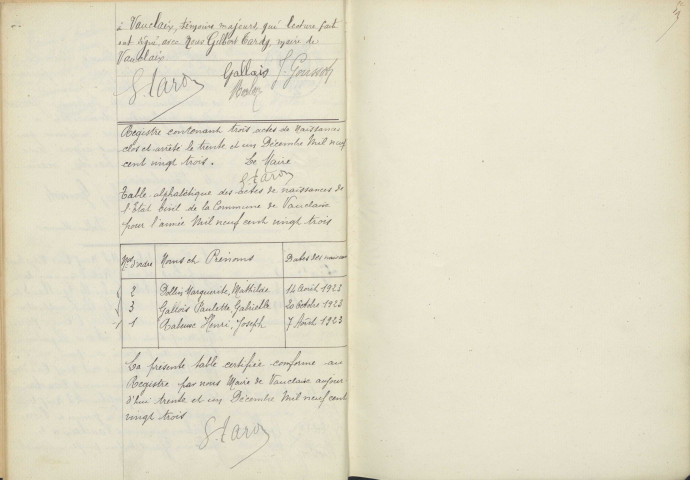 à Vauclaix, témoins majeurs, qui lecture fait
ont signé avec Nous Gilbert Tardy, maire de
Vauclaix
G. Tardy Gallais
Registre contenant trois actes de Naissances
clos et arrêté le trente et un Décembre Mil neuf
cent vingt trois. Le Maire
G. Tardy
Table alphabétique des actes de naissances de
l'Etat Civil de la Commune de Vauclaix
pour l'année Mil neuf cent vingt trois
Nos d'ordre Noms et Prénoms Dates des naissances
2 Marguerite, Mathilde 14 Août 1923
3 Paulette, Gabrielle 20 Octobre 1923
1 Henri, Joseph 7 Août 1923
La présente table certifiée conforme au
Registre par nous Maire de Vauclaix aujour
d'hui trente et un Décembre Mil neuf cent
vingt trois
G. Tardy